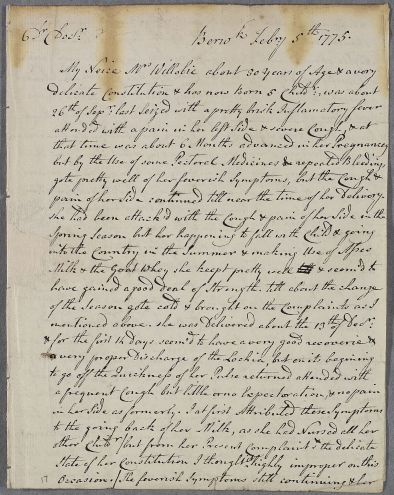 Dr Docr.
Berwk. Febry 5th 1775.
My Neice Mrs Wellobie about 30 years of Age & a very
delicate Constitution & has now born 5 Childn; was about
26th of Sepr last seized with a pretty brisk Inflamatory fever
attended with a pain in her left Side & severe Cough, & at
that time was about 6 Months advanced in her Pregnancy
but by the Use of some Pectoral Medicines & repeated Bleeding
gote pretty well of her feverish Symptoms, but the Cough &
pain of her Side continued till near the time of her Delivery.
she had been attack'd with the Cough & pain of her Side in the
Spring Season but her happening to fall with Child & going
into the Country in the Summer & making Use of Asses
Milk & the Goat Whey she keept pretty well & seem'd to
have gained a good deal of Strength. till about the change
of the Season gote cold & brought on the Complaints as I
mentioned above. she was Delivered about the 13th of Decr.
& for the first 14 days seem'd to have a very good recoverie &
a very proper Discharge of the Lochia but on its begining
to go off the Quickness of her Pulse returned attended with
a frequent Cough but little or no Expectoration, & no pain
in her Side as formerly. I at first Attributed these Symptoms
to the going back of her Milk, as she had Nursed all her
other Childn but from her Present Complaints & the delicate
State of her Constitution I thought highly improper on this
Occasion. The feverish Symptoms still continuing & her